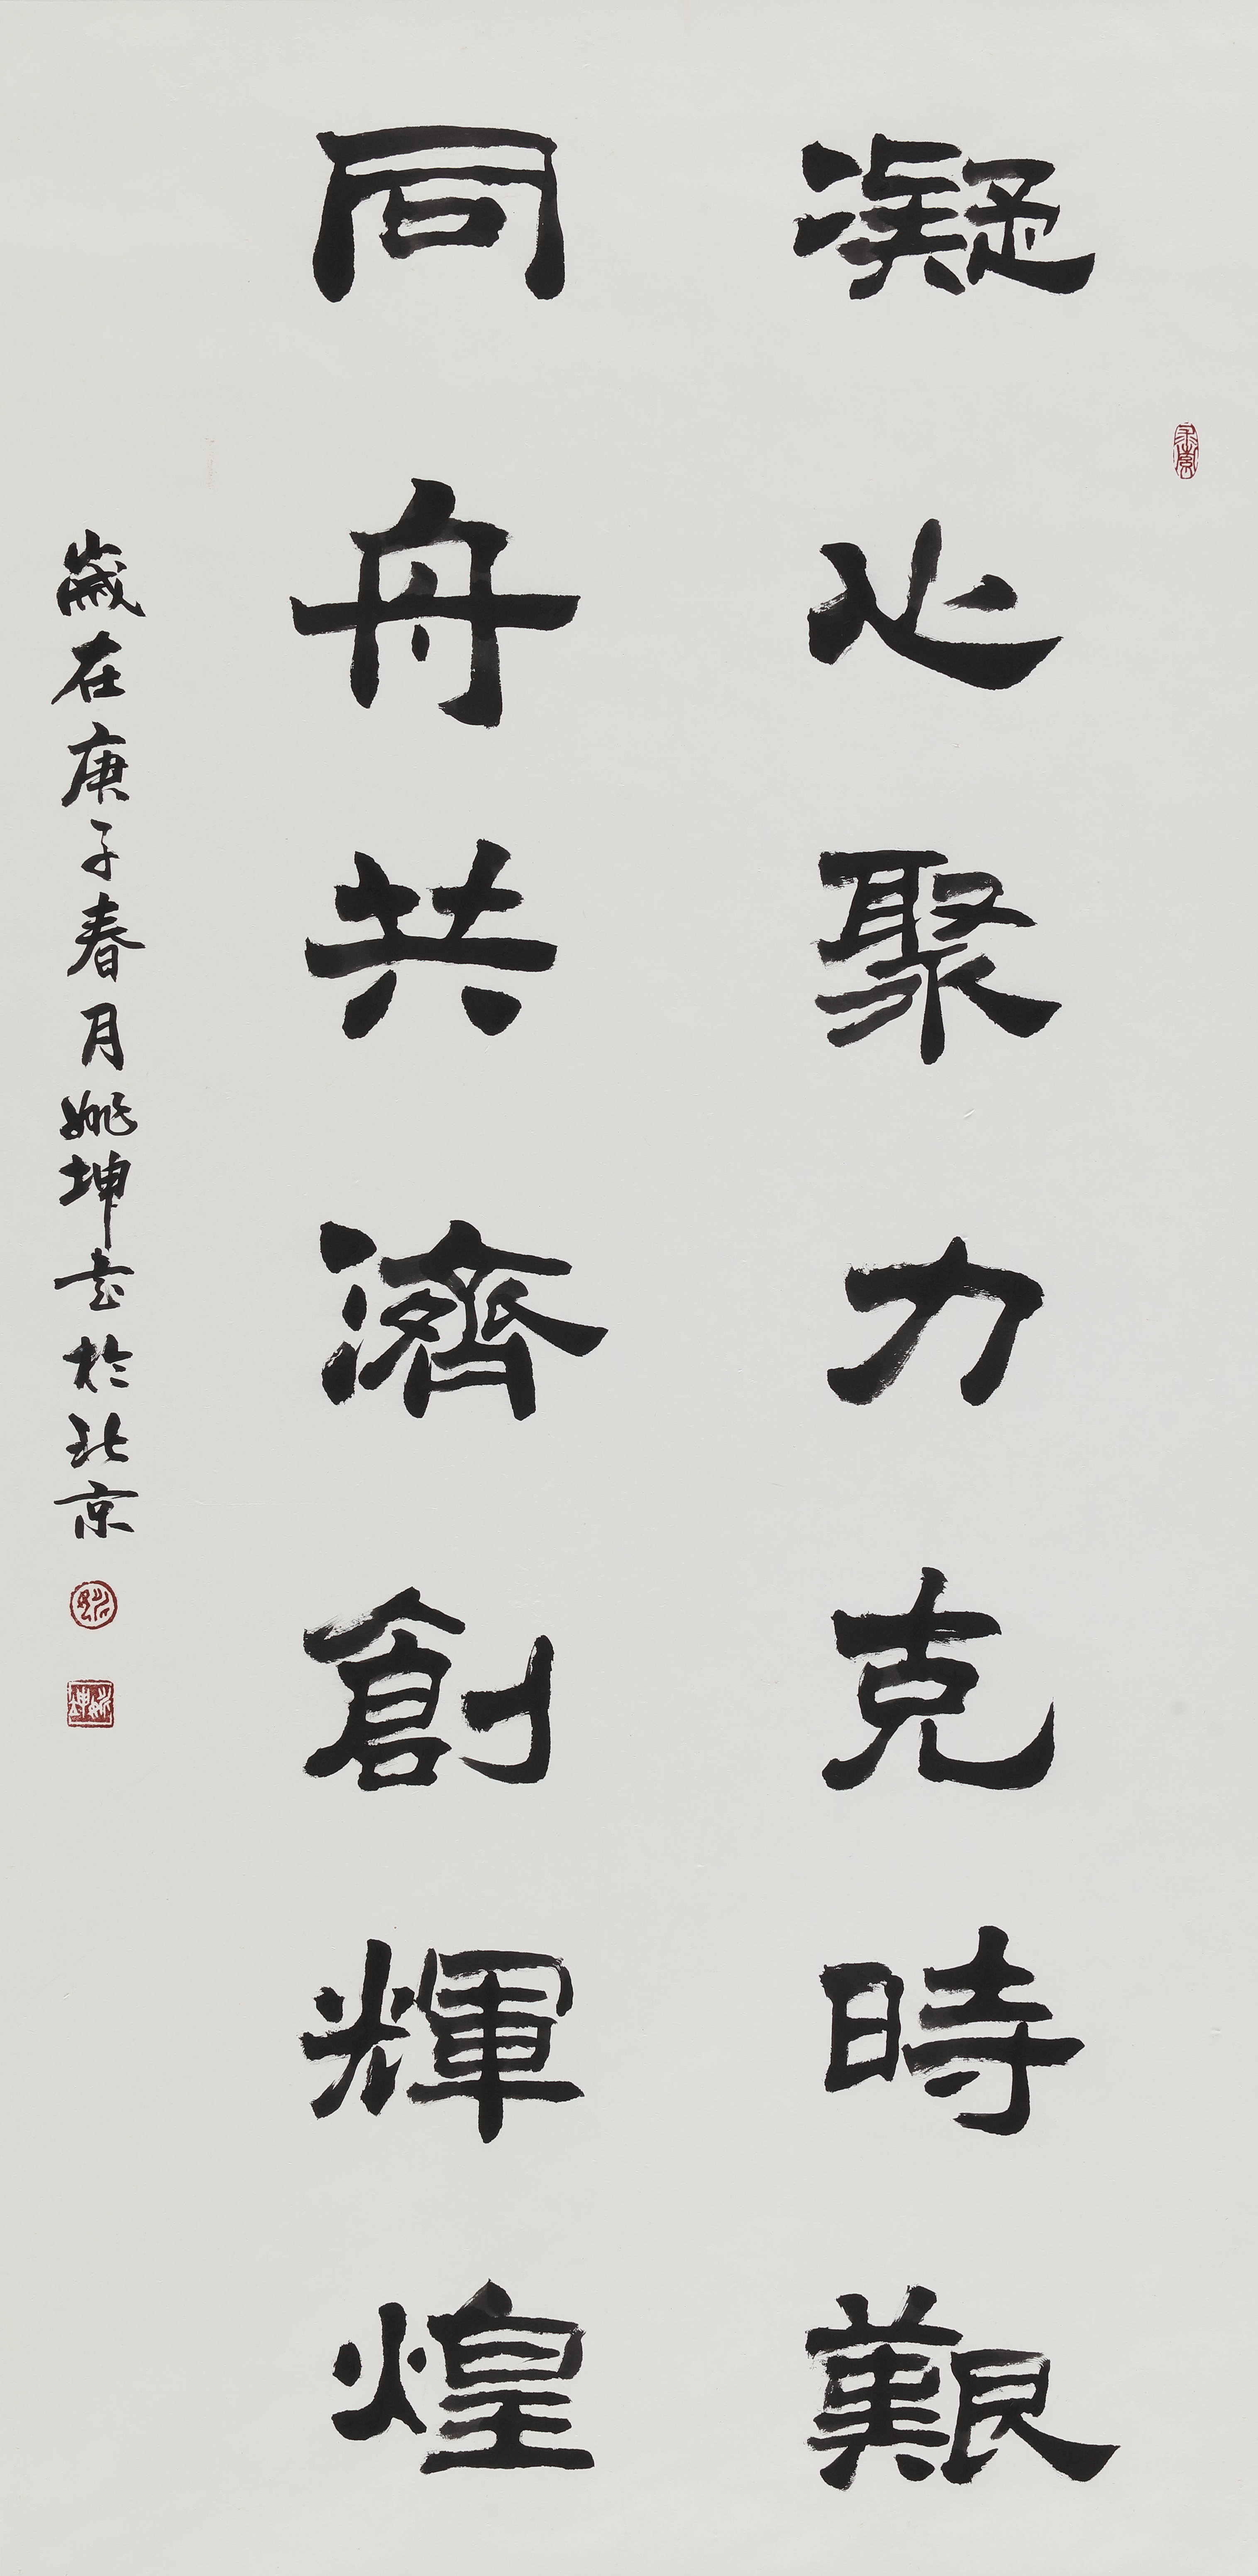 凝心聚力克時艱
同舟共濟創輝煌
歲在庚子春月姚坤書於北京
姚坤